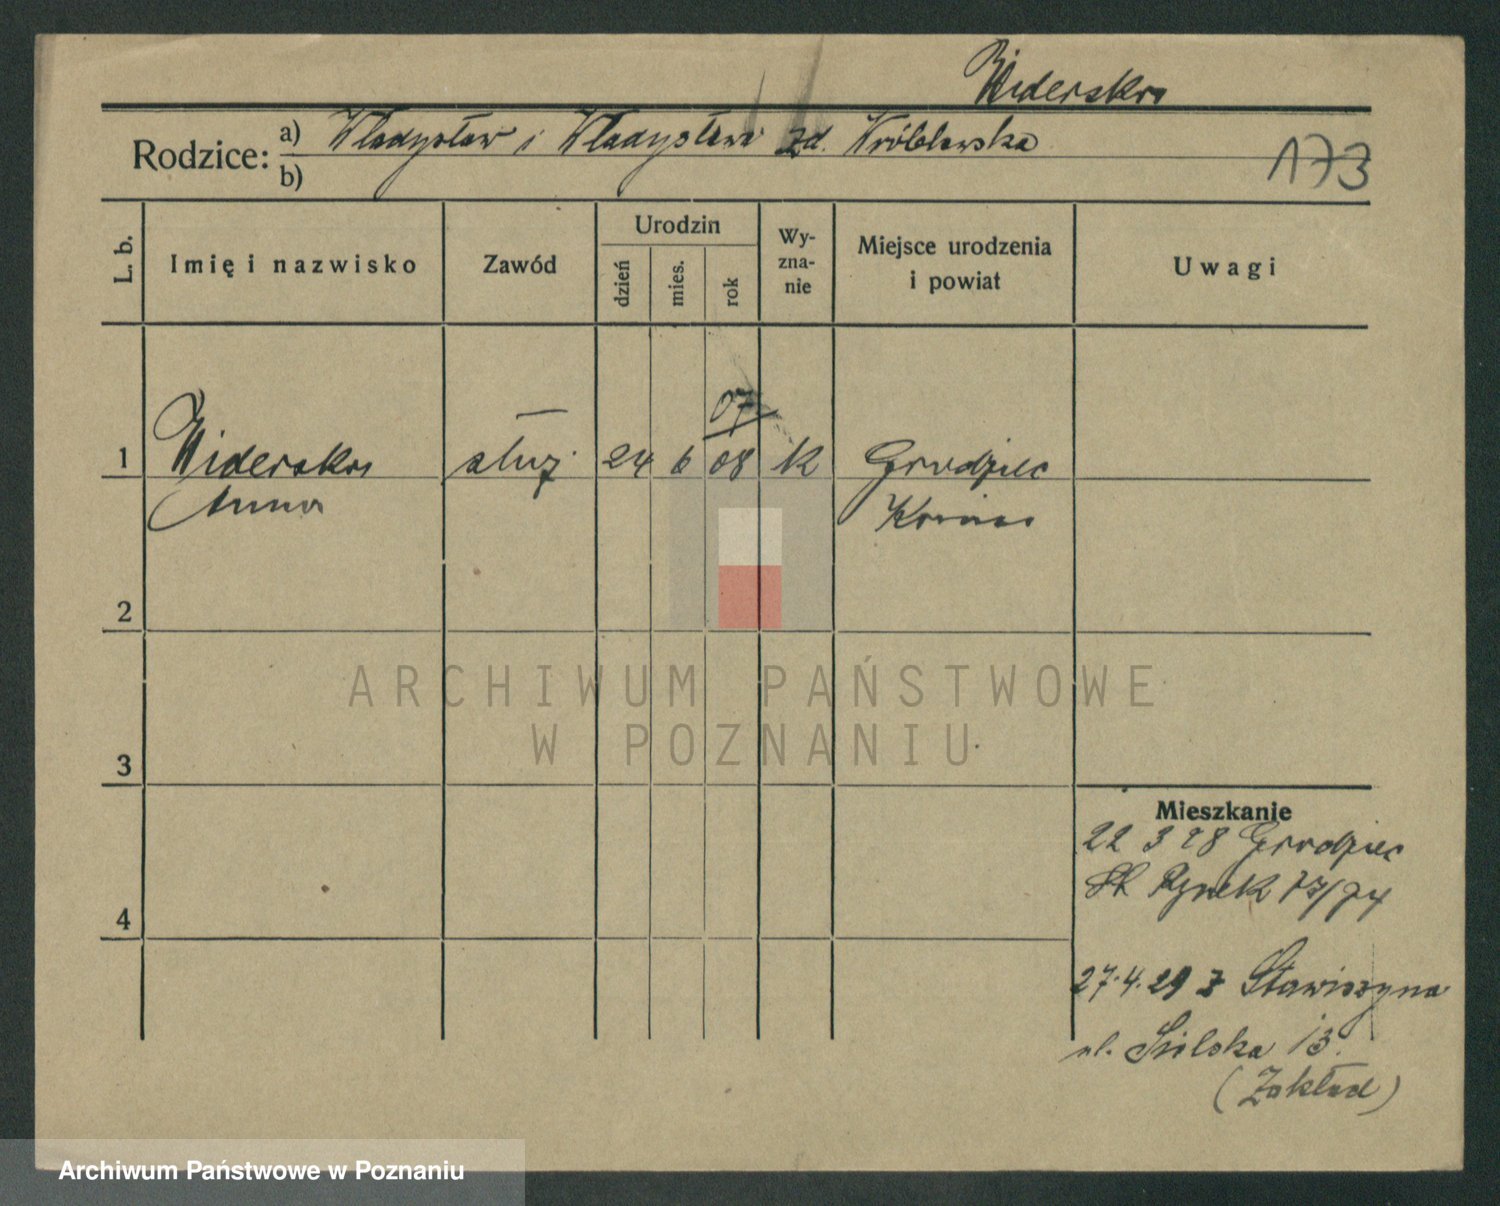 Widerska
Rodzice: a) Władysław i Władysława zd. Wróblewska
b)
173
L. b.
Imię i nazwisko
Zawód
Urodzin
dzień
mies.
rok
Wy-
zna-
nie
Miejsce urodzenia
i powiat
Uwagi
07
1 Widerska służ 24 6 08 k Grodziec
Anna Konin
2
3
4
Mieszkanie
22 3 28 Grodziec
St. Rynek 73/74
27.4.29 z Stawiszyna
ul. Sielska 13.
(Zakład)
ARCHIWUM PAŃSTWOWE
W POZNANIU
Archiwum Państwowe w Poznaniu